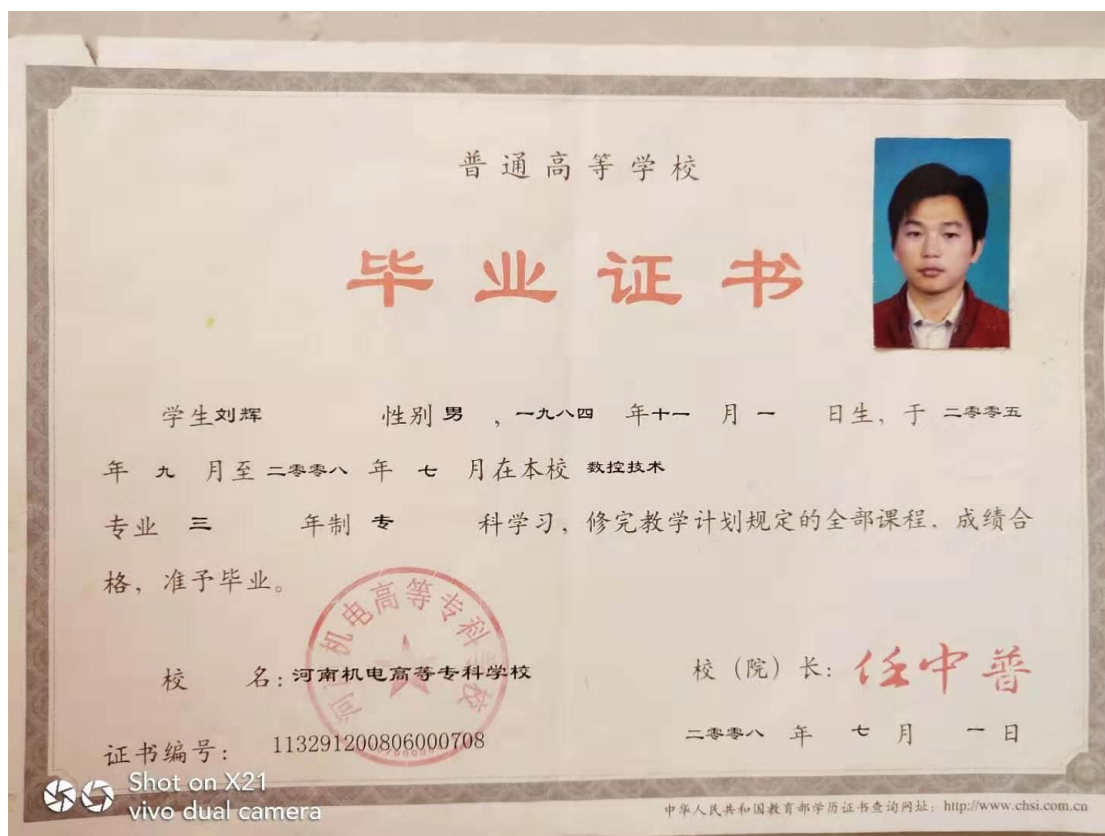 普通高等学校
毕业证书
学生刘辉 性别男，一九八四年十一月一日生，于二零零五
年九月至二零零八年七月在本校数控技术
专业三年制专科学习，修完教学计划规定的全部课程，成绩合
格，准予毕业。
河南机电高等专科学校
校 名：河南机电高等专科学校
校（院）长：任中普
证书编号：113291200806000708
二零零八年七月一日
Shot on X21
vivo dual camera
中华人民共和国教育部学历证书查询网址：http://www.chsi.com.cn